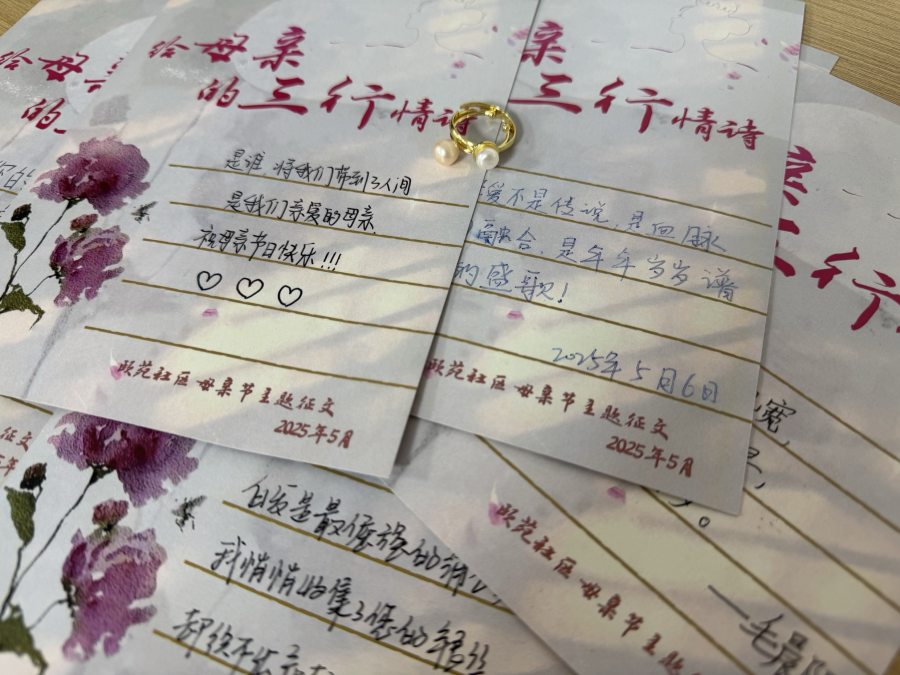 给母亲
的
给母亲
的三行情诗
是谁,将我们带到了人间
是我们亲爱的母亲
祝母亲节日快乐!!!
欣苑社区 母亲节主题征文
2025年5月
亲
三行情诗
爱不是传说,是血脉
融合,是年年岁岁谱
的盛歌!
2025年5月6日
欣苑社区 母亲节主题征文
2025年5月
亲
三行
宽,
。
欣苑社区 母亲节主题
一毛晨
的
征文
年5月
白发是最倔强的
我悄悄收集了您的
却